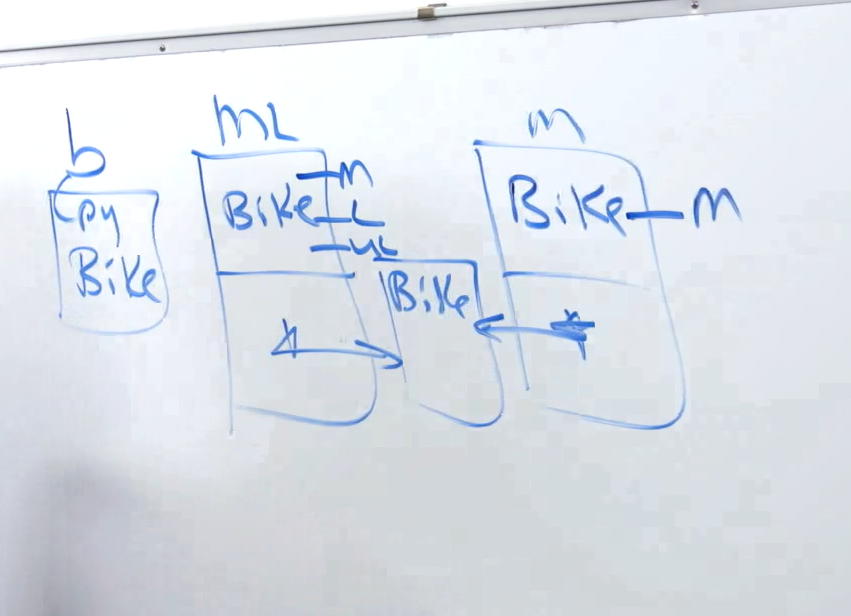 b
py
Bike
ML
Bike
M
L
UL
Bike
*
M
Bike
M
*